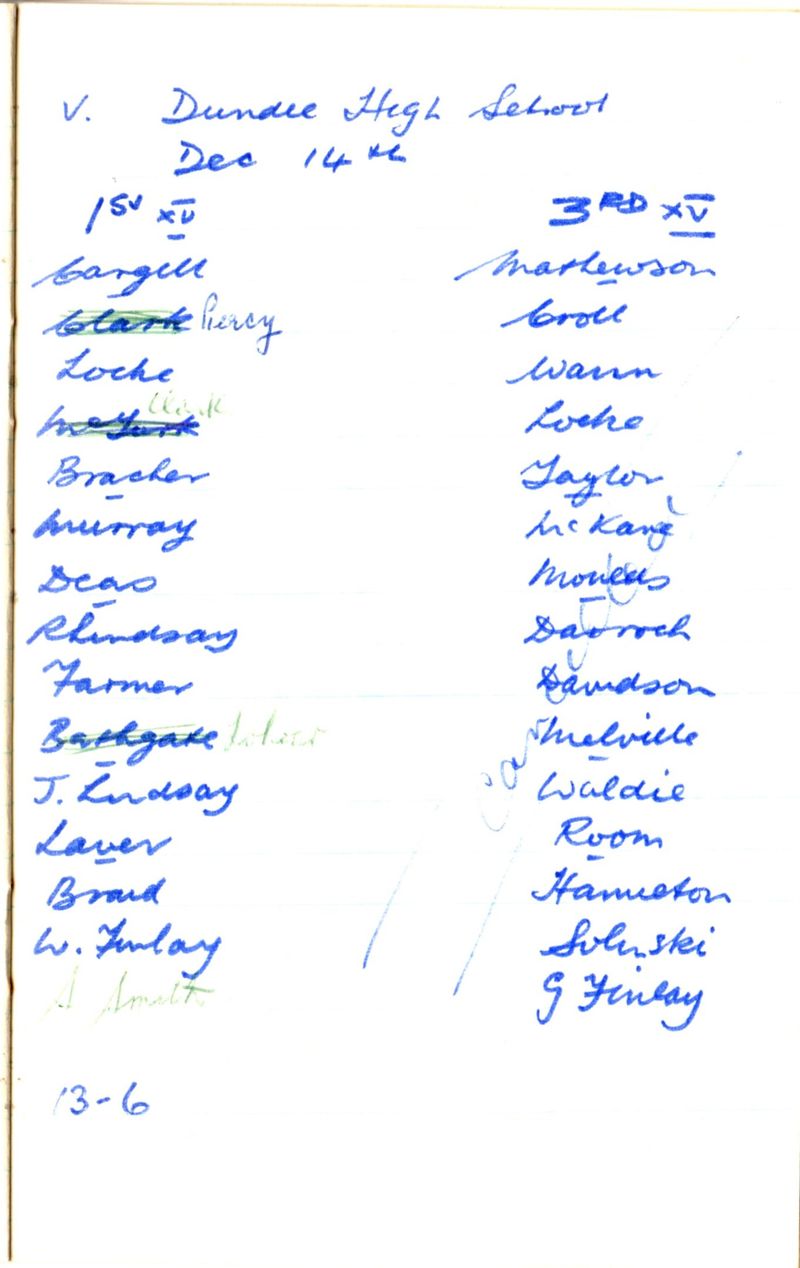 V. Dundee High School
Dec 14th
1st XV
Cargill
Clark Piercy
Locke
Clark
McTurk
Bracher
Murray
Deas
R Lindsay
Farmer
Bathgate
J. Lindsay
Laver
Braid
W. Finlay
A Smith
13-6
3RD XV
Mathewson
Croll
Wann
Locke
Taylor
McKane
Darroch
Davidson
Melville
Waldie
Room
Hamilton
Solinski
G Finlay